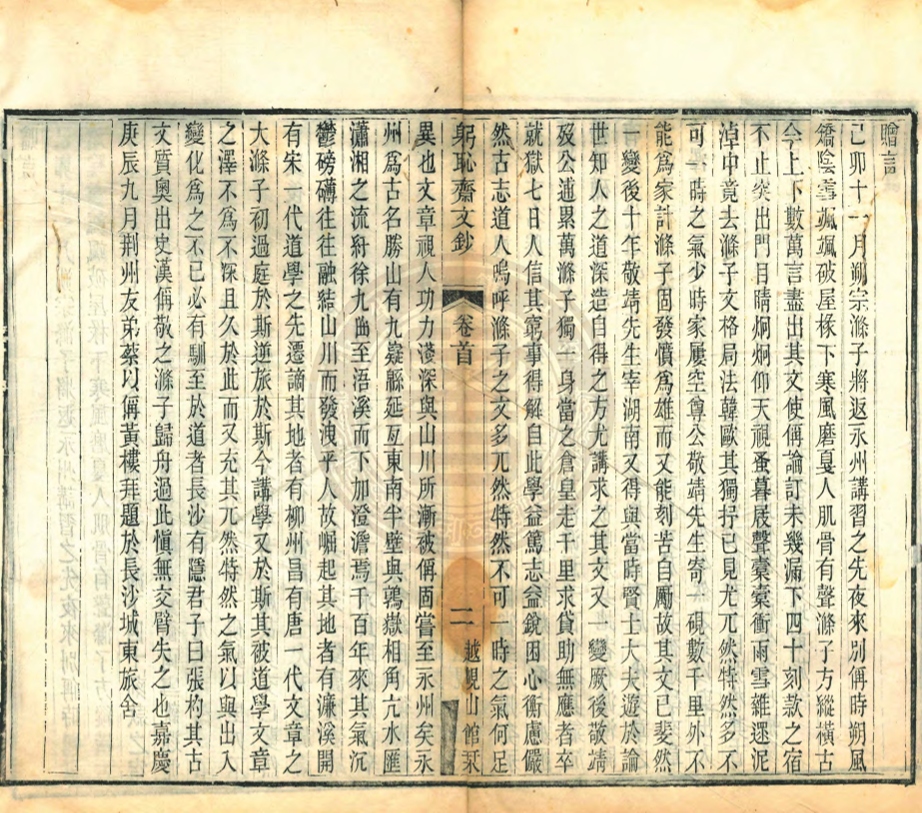 贈言
己卯十一月朔宗滌子將返永州講習之先夜來別偁時朔風
鐈陰雪颯颯破屋椽下寒風磨戛人肌骨有聲滌子方縱橫古
今上下數萬言盡出其文使偁論訂未幾漏下四十刻款之宿
不止突出門目睛炯炯仰天視蚤暮屐聲橐橐衝雨雪雜遝泥
淖中竟去滌子文格局法韓歐其獨抒已見尤兀然特然多不
可一時之氣少時家屢空尊公敬靖先生寄一硯數千里外不
能爲家計滌子固發憤爲雄而又能刻苦自勵故其文已斐然
一變後十年敬靖先生宰湖南又得與當時賢士大夫遊於論
世知人之道深造自得之方尤講求之其文又一變厥後敬靖
歿公逋累萬滌子獨一身當之倉皇走千里求貸助無應者卒
就獄七日人信其窮事得解自此學益篤志益銳困心衡慮儼
然古志道人嗚呼滌子之文多兀然特然不可一時之氣何足
躬恥齋文鈔
卷首
二
越峴山館栞
異也文章視人功力淺深與山川所漸被偁固嘗至永州矣永
州爲古名勝山有九嶷緜延亙東南半壁與鶉嶽相角亢水匯
瀟湘之流紆徐九曲至浯溪而下加澄澹焉千百年來其氣沉
鬱磅礴往往融結山川而發洩乎人故崛起其地者有濂溪開
有宋一代道學之先遷謫其地者有柳州昌有唐一代文章之
大滌子初過庭於斯逆旅於斯今講學又於斯其被道學文章
之澤不爲不深且久於此而又充其兀然特然之氣以與出入
變化爲之不已必有馴至於道者長沙有隱君子曰張杓其古
文質奧出史漢偁敬之滌子歸舟過此愼無交臂失之也嘉慶
庚辰九月荆州友弟蔡以偁黃樓拜題於長沙城東旅舍